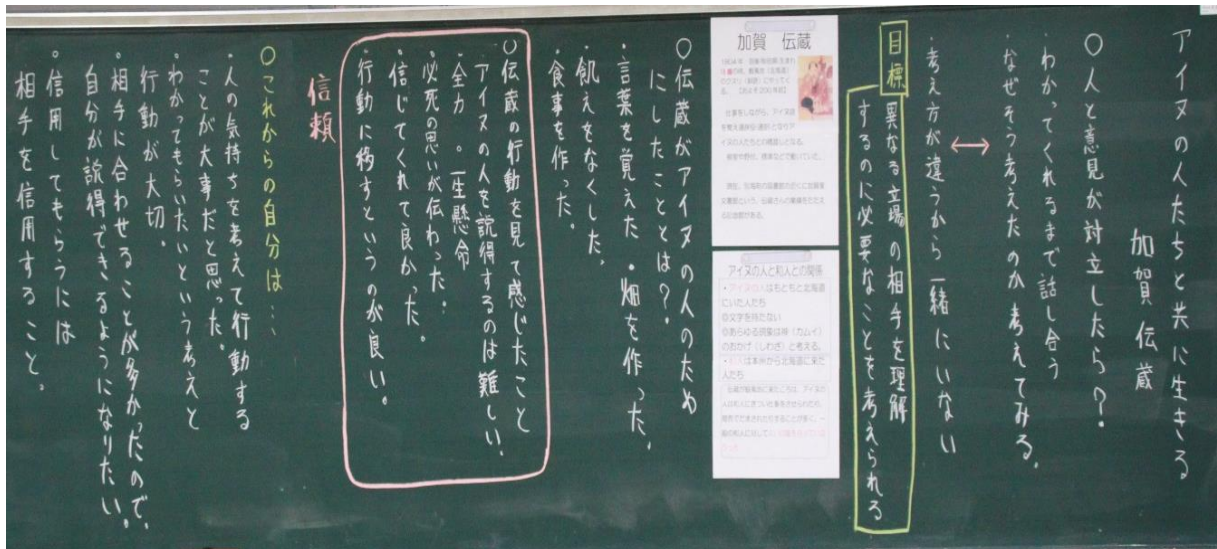 アイヌの人たちと共に生きる
加賀 伝蔵
○人と意見が対立したら?
・わかってくれるまで話し合う
・なぜそう考えたのか考えてみる。
↔
・考え方が違うから一緒にいない
目標 異なる立場の相手を理解
するのに必要なことを考えられる
加賀 伝蔵
アイヌの人と和人との関係
・アイヌの人はもともと北海道
にいた人たち
◎文字を持たない
◎あらゆる現象は神(カムイ)
のおかげ(しわざ)と考える。
・和人は本州から北海道に来た
人たち
○伝蔵がアイヌの人のため
にしたことは?
・言葉を覚えた・畑を作った。
・飢えをなくした。
・食事を作った。
○伝蔵の行動を見て感じたこと
・アイヌの人を説得するのは難しい。
・全力 。一生懸命
・必死の思いが伝わった。
・信じてくれて良かった。
・行動に移すというのが良い。
信頼
○これからの自分は…
・人の気持ちを考えて行動する
ことが大事だと思った。
・わかってもらいたいという考えと
行動が大切。
・相手に合わせることが多かったので、
自分が説得できるようになりたい。
・信用してもらうには
相手を信用すること。